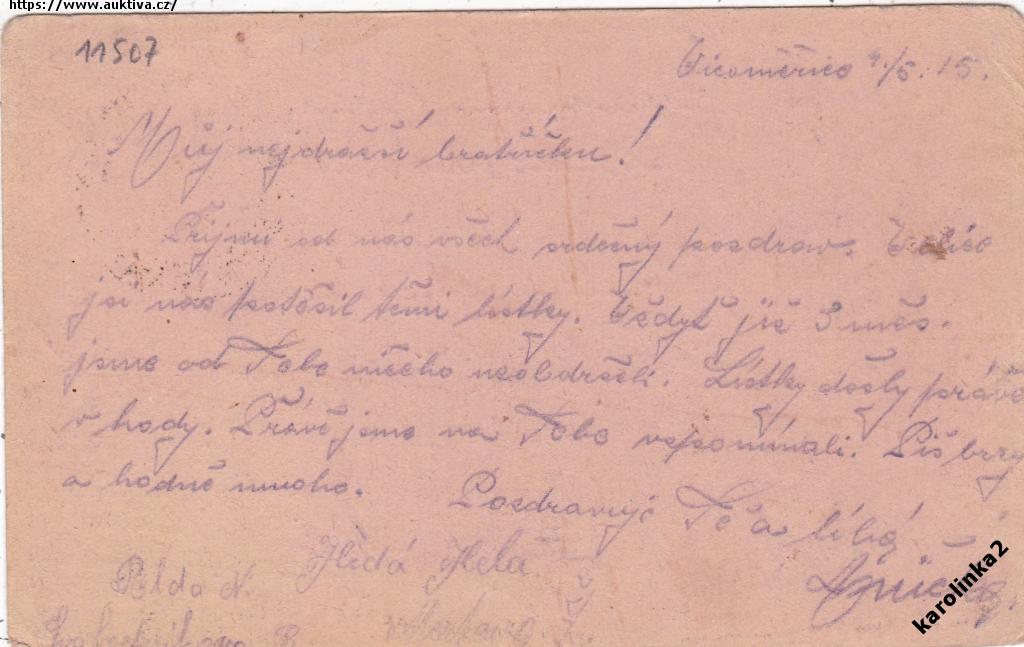 https://www.auktiva.cz/
11507
5. 15.
Můj nejdražší bratříčku!
Přijmi od nás všech srdečný pozdrav. Velice
jsi nás potěšil těmi lístky. Vždyť již 3 měs.
jsme od Tebe ničeho neobdrželi. Lístky došly právě
v hody. Právě jsme na Tebe vzpomínali. Piš brzy
a hodně mnoho.
Pozdravuje Tě a líbá
Hela
karolinka2